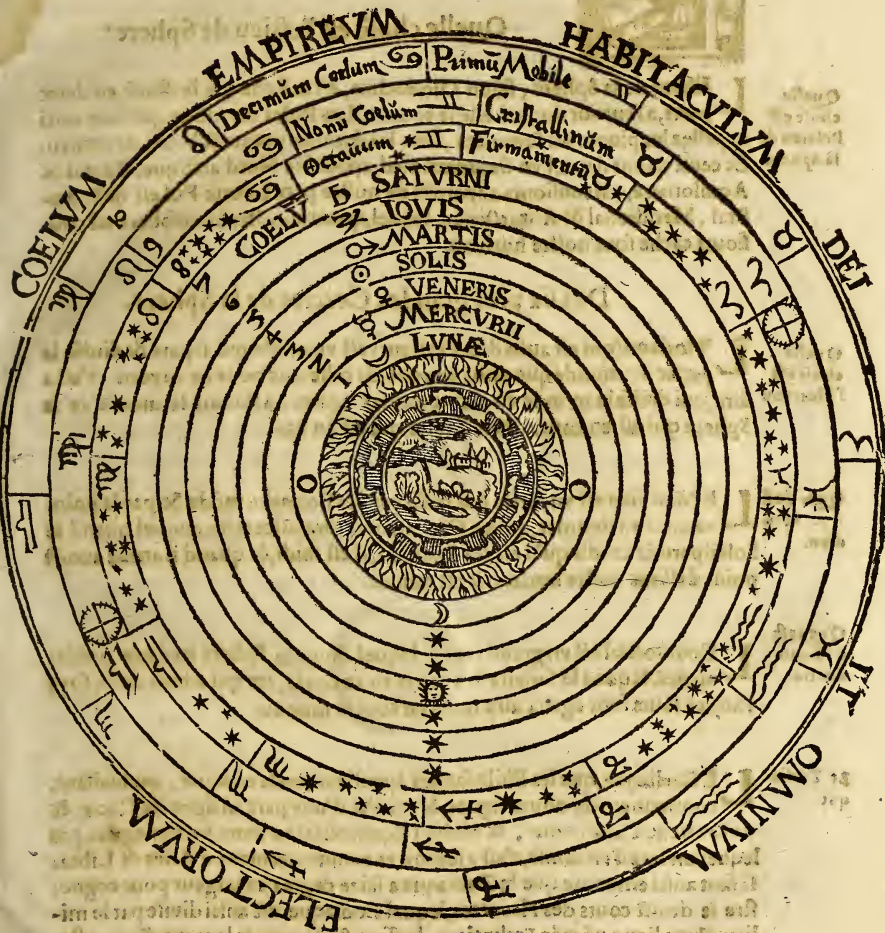 COELVM EMPIREVM HABITACVLVM DEI ET OMNIVM ELECTORVM
Decimum Coelum ♋ Primũ Mobile ♊
Nonũ Coelum ♊ Cristallinũm
Octauum ♊ Firmamentũ ♉
COELṼ ♄ SATVRNI
♃ IOVIS
♂ MARTIS
☉ SOLIS
♀ VENERIS
☿ MERCVRII
☽ LVNÆ
10
9
8
7
6
5
4
3
2
1